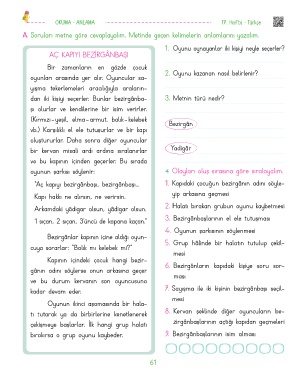 OKUMA - ANLAMA
19. Hafta - Türkçe
A. Soruları metne göre cevaplayalım. Metinde geçen kelimelerin anlamlarını yazalım.
AÇ KAPIYI BEZİRGÂNBAŞI
Bir zamanların en gözde çocuk
oyunları arasında yer alır. Oyuncular sa-
yışma tekerlemeleri aracılığıyla araların-
dan iki kişiyi seçerler. Bunlar bezirgânba-
şı olurlar ve kendilerine bir isim verirler.
(Kırmızı-yeşil, elma-armut, balık-kelebek
vb.) Karşılıklı el ele tutuşurlar ve bir kapı
oluştururlar. Daha sonra diğer oyuncular
bir kervan misali ardı ardına sıralanırlar
ve bu kapının içinden geçerler. Bu sırada
oyunun şarkısı söylenir:
"Aç kapıyı bezirgânbaşı, bezirgânbaşı...
Kapı hakkı ne alırsın, ne verirsin,
Arkamdaki yâdigar olsun, yâdigar olsun.
1 sıçan, 2 sıçan, 3'üncü de kapana kaçan."
Bezirgânlar kapının içine aldığı oyun-
cuya sorarlar: "Balık mı kelebek mi?"
Kapının içindeki çocuk hangi bezir-
gânın adını söylerse onun arkasına geçer
ve bu durum kervanın son oyuncusuna
kadar devam eder.
Oyunun ikinci aşamasında bir hala-
tı tutarak ya da birbirlerine kenetlenerek
çekişmeye başlarlar. İlk hangi grup halatı
bırakırsa o grup oyunu kaybeder.
1. Oyunu oynayanlar iki kişiyi neyle seçerler?
2. Oyunu kazanan nasıl belirlenir?
3. Metnin türü nedir?
Bezirgân
Yadigâr
Olayları oluş sırasına göre sıralayalım.
1. Kapıdaki çocuğun bezirgânın adını söyle-
yip arkasına geçmesi
2. Halatı bırakan grubun oyunu kaybetmesi
3. Bezirgânbaşlarının el ele tutuşması
4. Oyunun şarkısının söylenmesi
5. Grup hâlinde bir halatın tutulup çekil-
mesi
6. Bezirgânların kapıdaki kişiye soru sor-
ması
7. Sayışma ile iki kişinin bezirgânbaşı seçil-
mesi
8. Kervan şeklinde diğer oyuncuların be-
zirgânbaşlarının açtığı kapıdan geçmeleri
9. Bezirgânbaşlarının isim alması
61